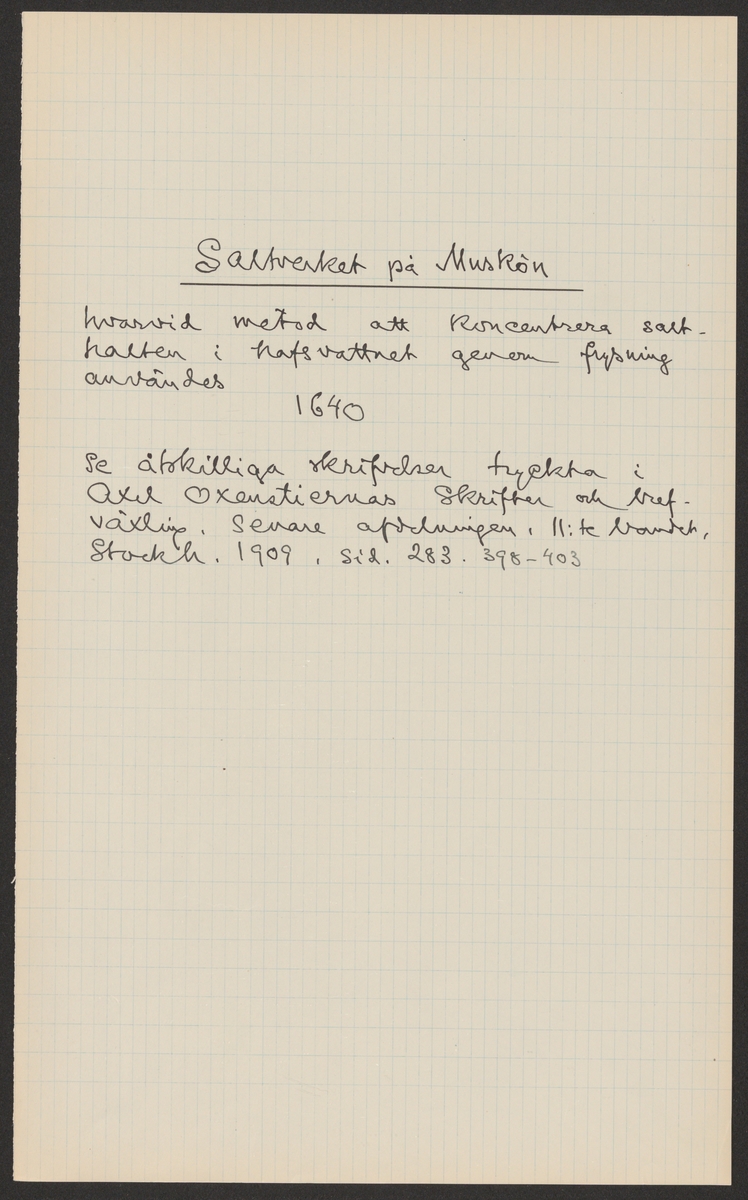 Saltverket på Muskön
hvarvid metod att koncentrera salt-
halten i hafsvattnet genom frysning
användes
1640
Se åtskilliga skrifvelser tryckta i
Axel Oxenstiernas Skrifter och bref-
växling. Senare afdelningen. 11:te bandet,
Stockh. 1909. Sid. 283. 398-403